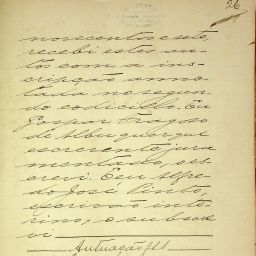 26
novecentos e sete,
recebi estes au-
tos com a ins-
cripção anno-
tada no segun-
do codicillo. Eu
Gaspar Fragoso
de Albuquerque
escrevente jura-
mentado, o es-
crevi. E eu Alfre-
do José Pinto,
escrivão inte-
rino, o subscre-
vi
Autuação fls